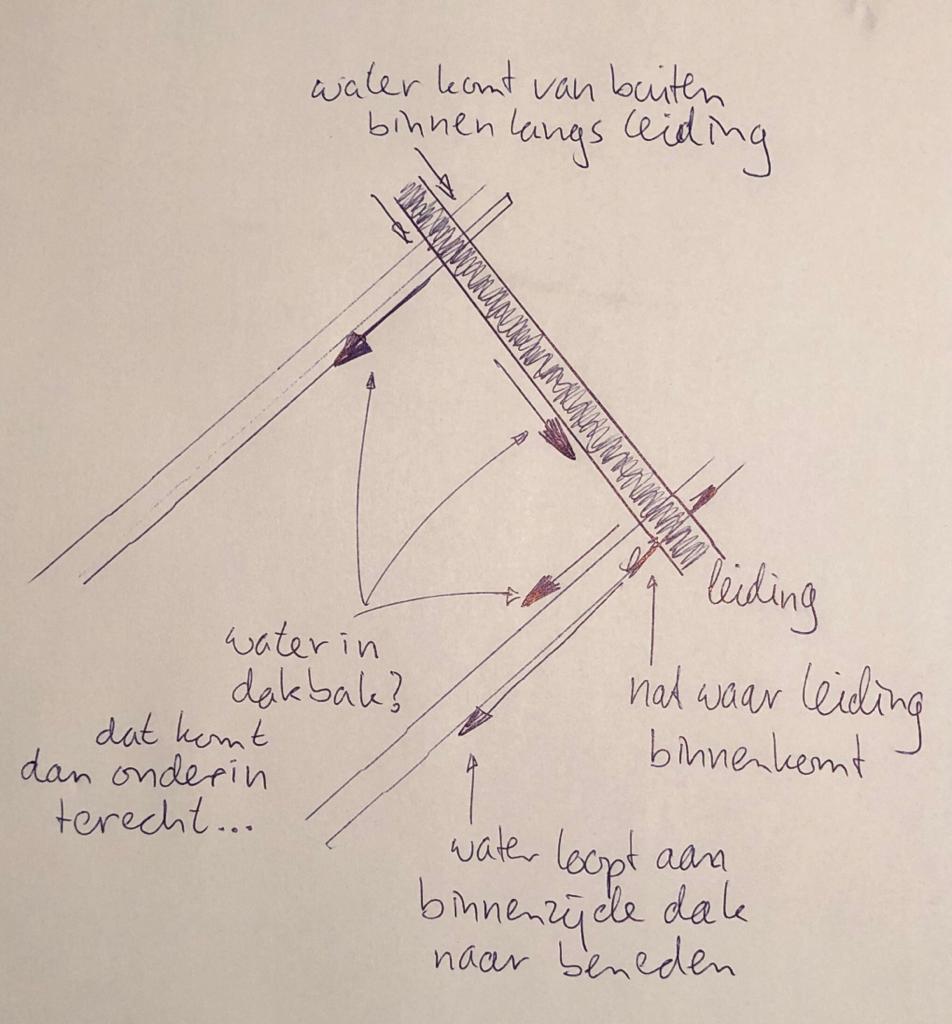 water komt van buiten
binnen langs leiding
leiding
water in
dakbak?
dat komt
dan onderin
terecht...
nat waar leiding
binnenkomt
water loopt aan
binnenzijde dak
naar beneden